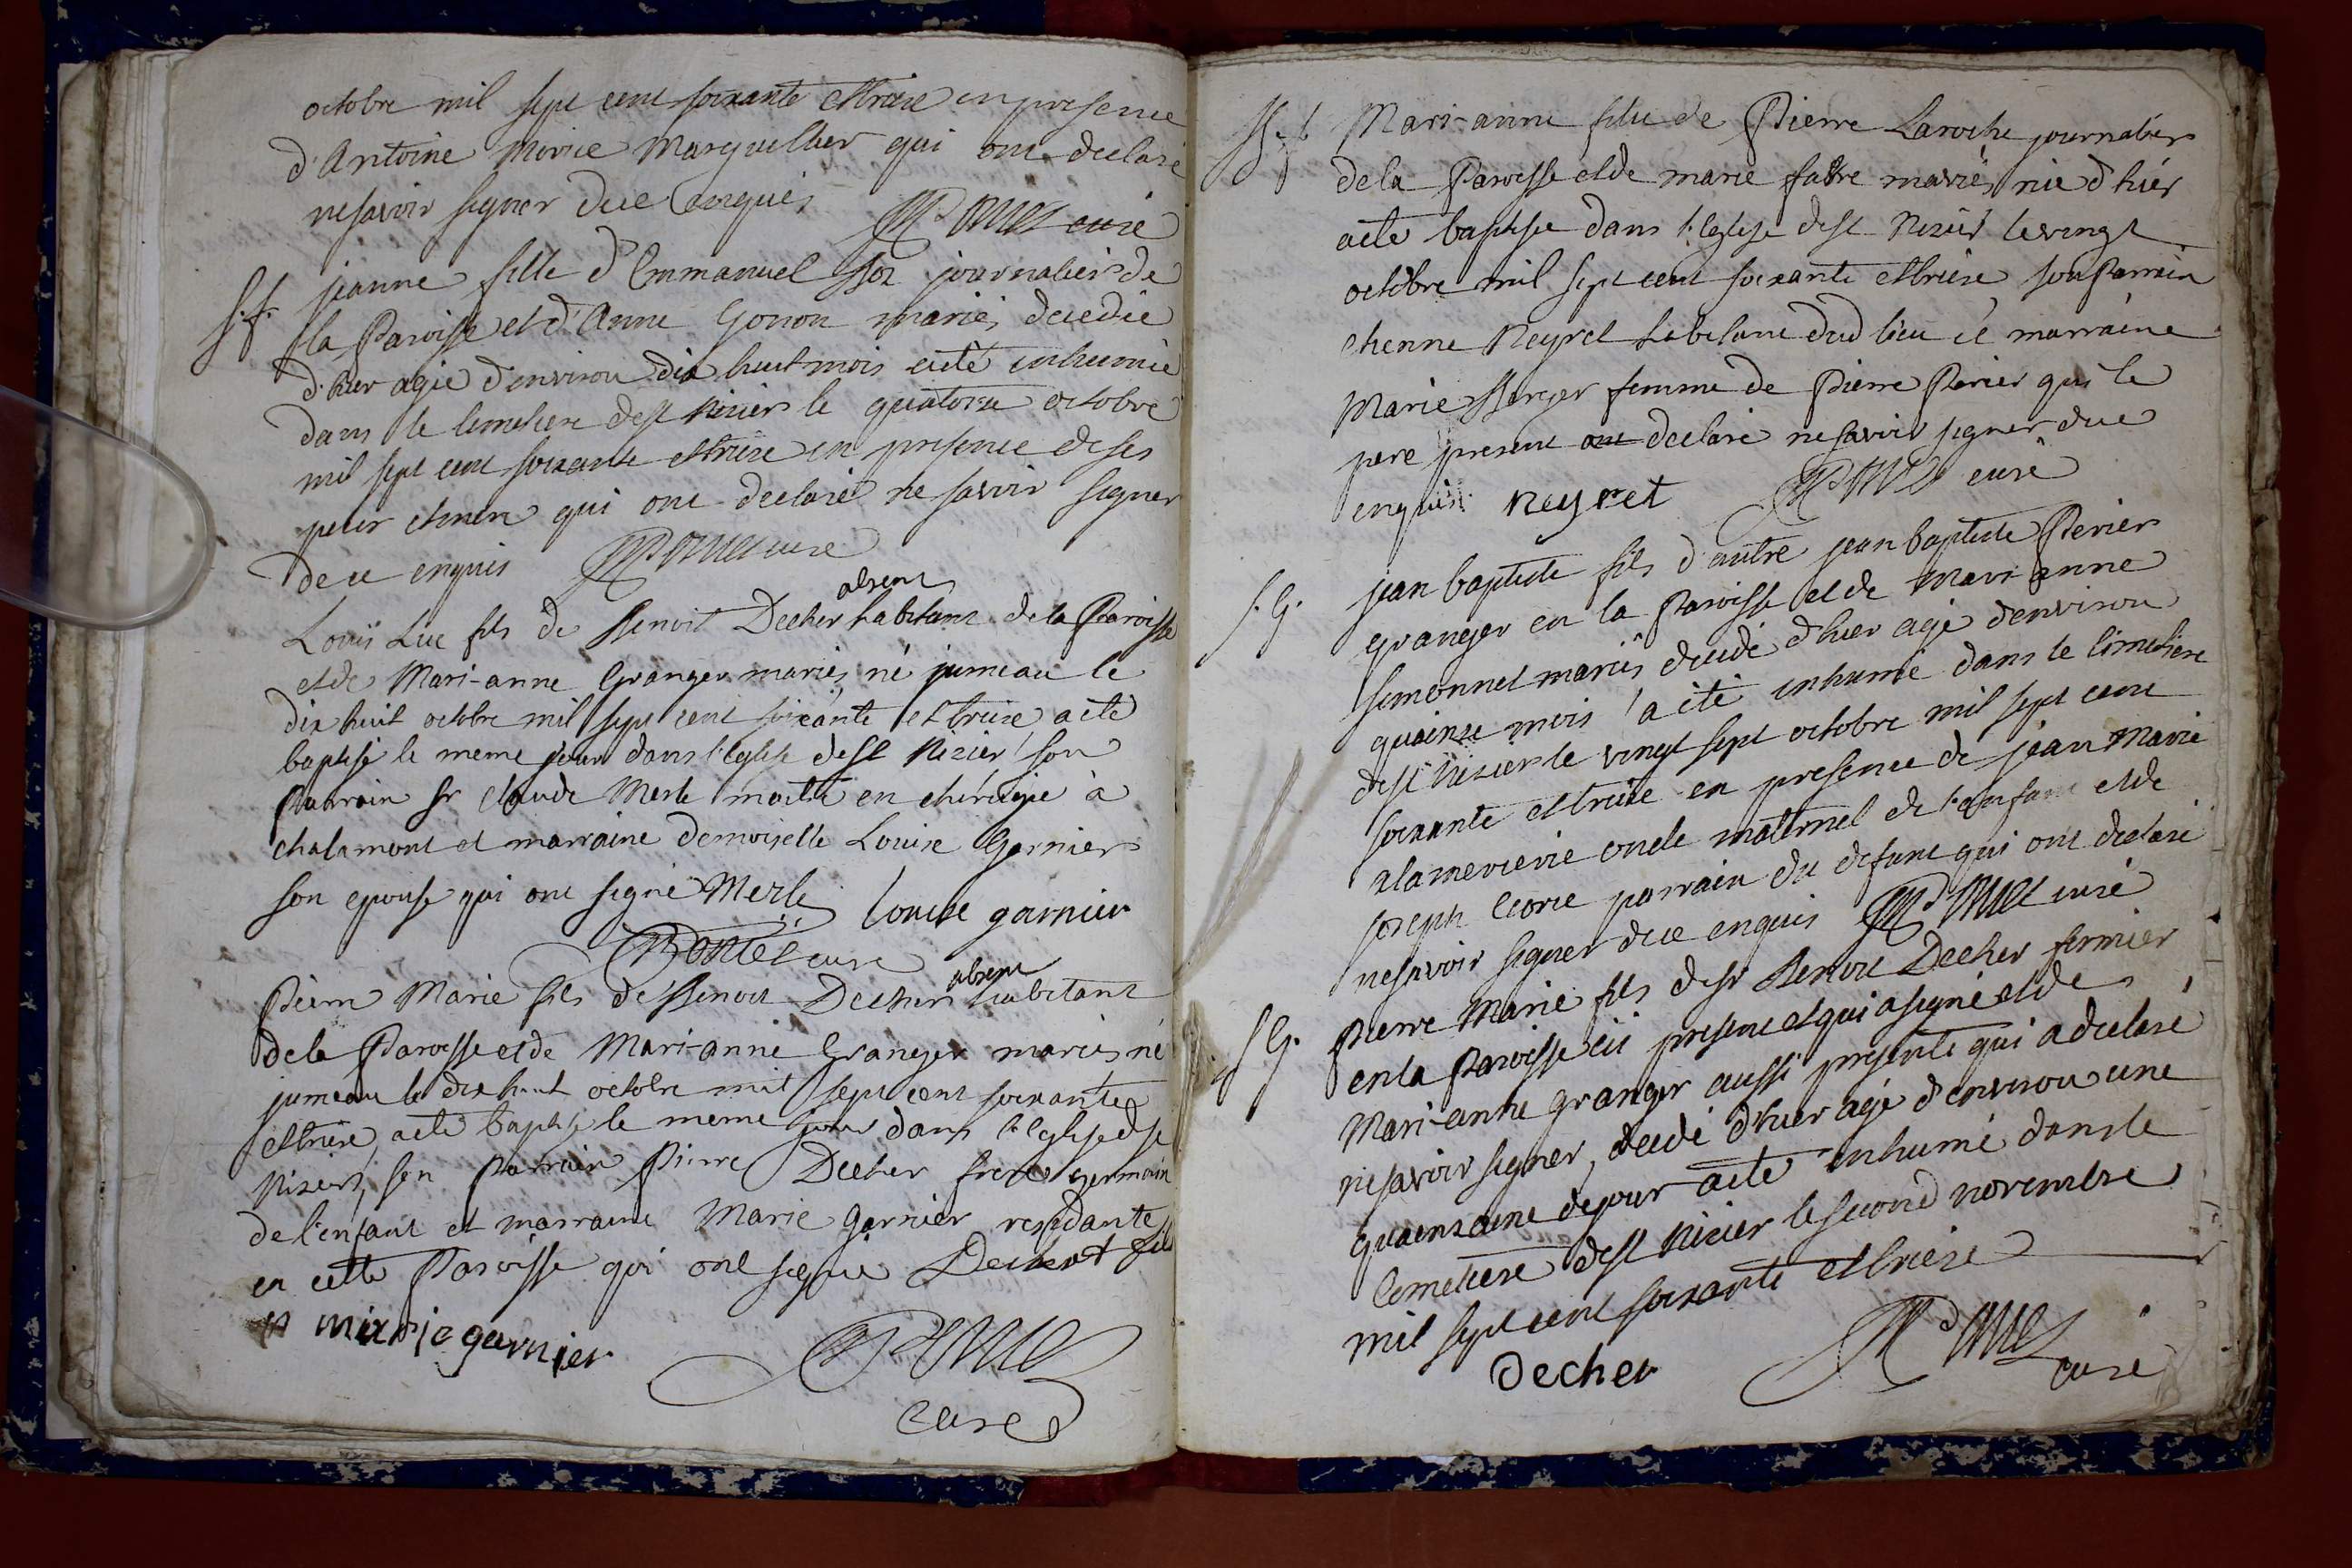 octobre mil sept cent soixante et treize en presence
d'Antoine Morice Marguillier qui ont declaré
ne savoir signer de ce enquis
curé
S. f. jeanne fille d'Emmanuel journalier de
la Paroisse et d'Anne Gonon mariés decedée
d'hier agée d'environ dix huit mois a eté inhumée
dans le Cimetiere de St Nizier le quatorze octobre
mil sept cent soixante et treize en presence de ses
peres et mere qui ont declaré ne savoir signer
de ce enquis curé
absent
Louis Luc fils de Benoit Decher habitant de la Paroisse
et de Mari-anne Granger mariés, né jumeau le
dix huit octobre mil sept cent soixante et treize a eté
baptisé le meme jour dans l'Eglise de St Nizier son
Parrain Sr Claude Merle maitre en chirurgie à
chalamont et marraine demoiselle Louise Garnier
son epouse qui ont signé Merle louise garnier
curé
absent
Pierre Marie fils de Benoit Decher habitant
de la Paroisse et de Mari-anne Granger mariés né
jumeau le dix huit octobre mil sept cent soixante
et treize, a eté baptisé le meme jour dans l'Eglise de St
Nizier, son Parrain Pierre Decher frere germain
de l'enfant et marraine Marie Garnier residante
en cette Paroisse qui ont signé Decher fils
marie garnier
curé
B. f. Mari-anne fille de Pierre Laroche journalier
de la Paroisse et de marie fabre mariés née d'hier
a eté baptisée dans l'Eglise de St Nizier le vingt
octobre mil sept cent soixante et treize son Parrain
etienne Neyret habitant dud lieu et marraine
Marie Berger femme de Pierre Perier qui le
pere present ont declaré ne savoir signer de ce
enquis. Neyret curé
S. G. jean baptiste fils d'autre jean baptiste Perier
granger en la Paroisse et de Mari anne
Simonnet mariés decedé d'hier agé d'environ
quainze mois a eté inhumé dans le Cimetiere
de St Nizier le vingt sept octobre mil sept cent
soixante et treize en presence de jean Marie
alamercerie oncle maternel de l'enfant et de
joseph parrain du defunt qui ont declaré
ne savoir signer de ce enquis curé
S G. Pierre Marie fils de Sr Benoit Decher fermier
en la Paroisse ici present et qui a signé et de
Mari-anne granger aussi presente qui a declaré
ne savoir signer, decedé d'hier agé d'environ une
quainzaine de jour a eté inhumé dans le
Cimetiere de St Nizier le second novembre
mil sept cent soixante et treize
Decher
curé